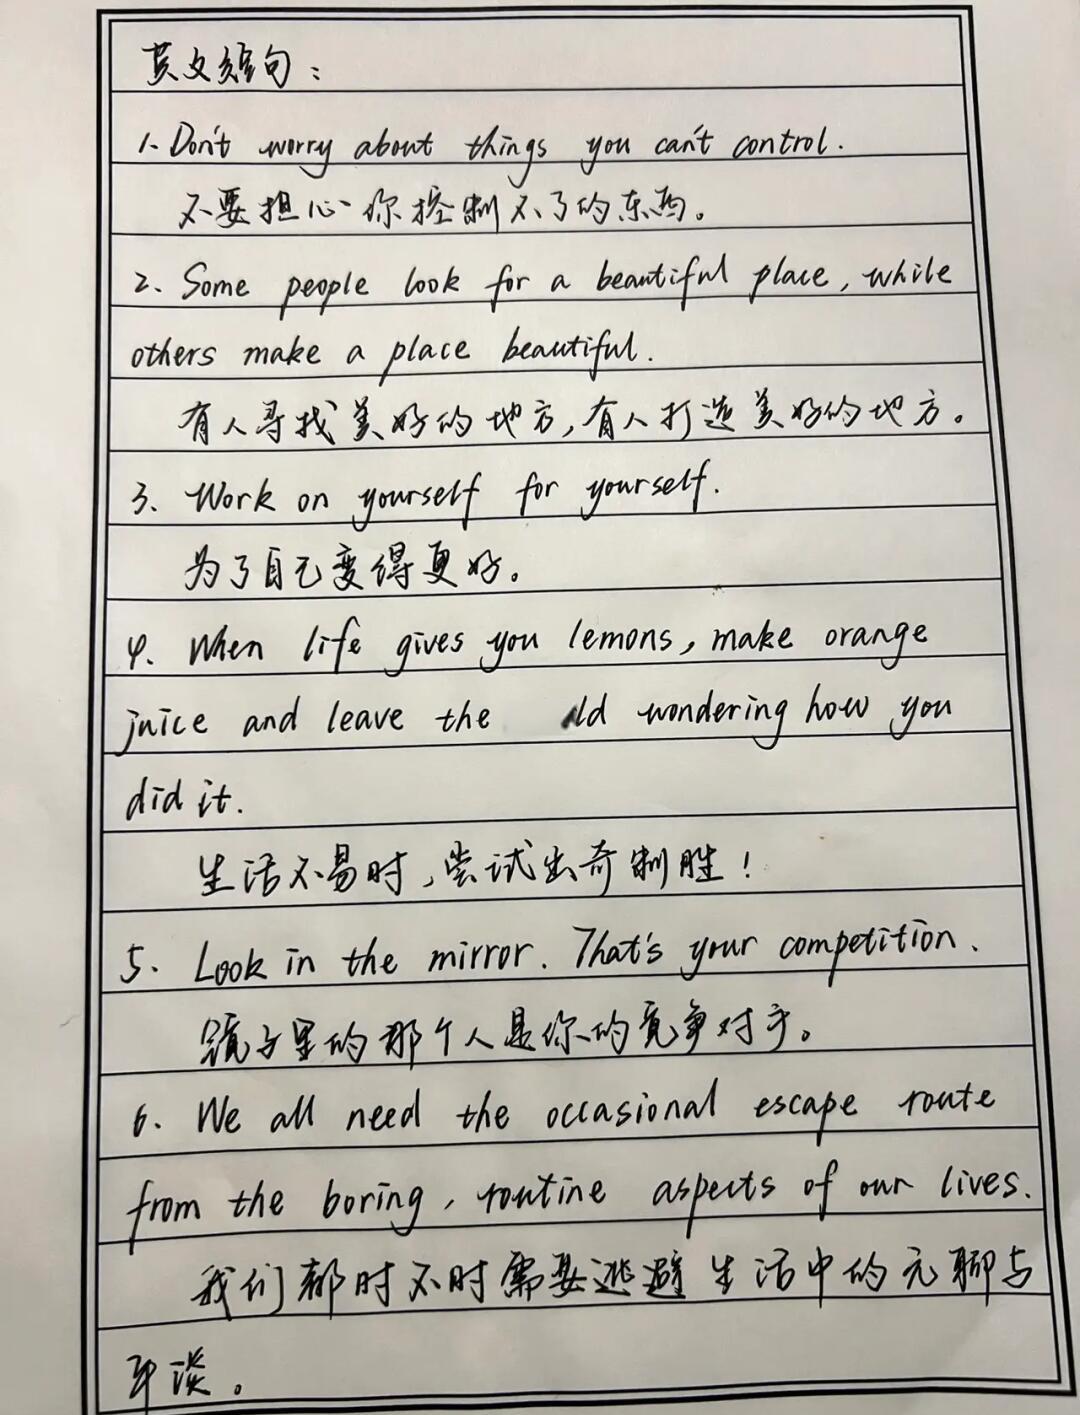 英文短句：
1. Don't worry about things you can't control.
不要担心你控制不了的东西。
2. Some people look for a beautiful place, while
others make a place beautiful.
有人寻找美好的地方，有人打造美好的地方。
3. Work on yourself for yourself.
为了自己变得更好。
4. When life gives you lemons, make orange
juice and leave the ld wondering how you
did it.
生活不易时，尝试出奇制胜！
5. Look in the mirror. That's your competition.
镜子里的那个人是你的竞争对手。
6. We all need the occasional escape route
from the boring, routine aspects of our lives.
我们都时不时需要逃避生活中的无聊与
平淡。